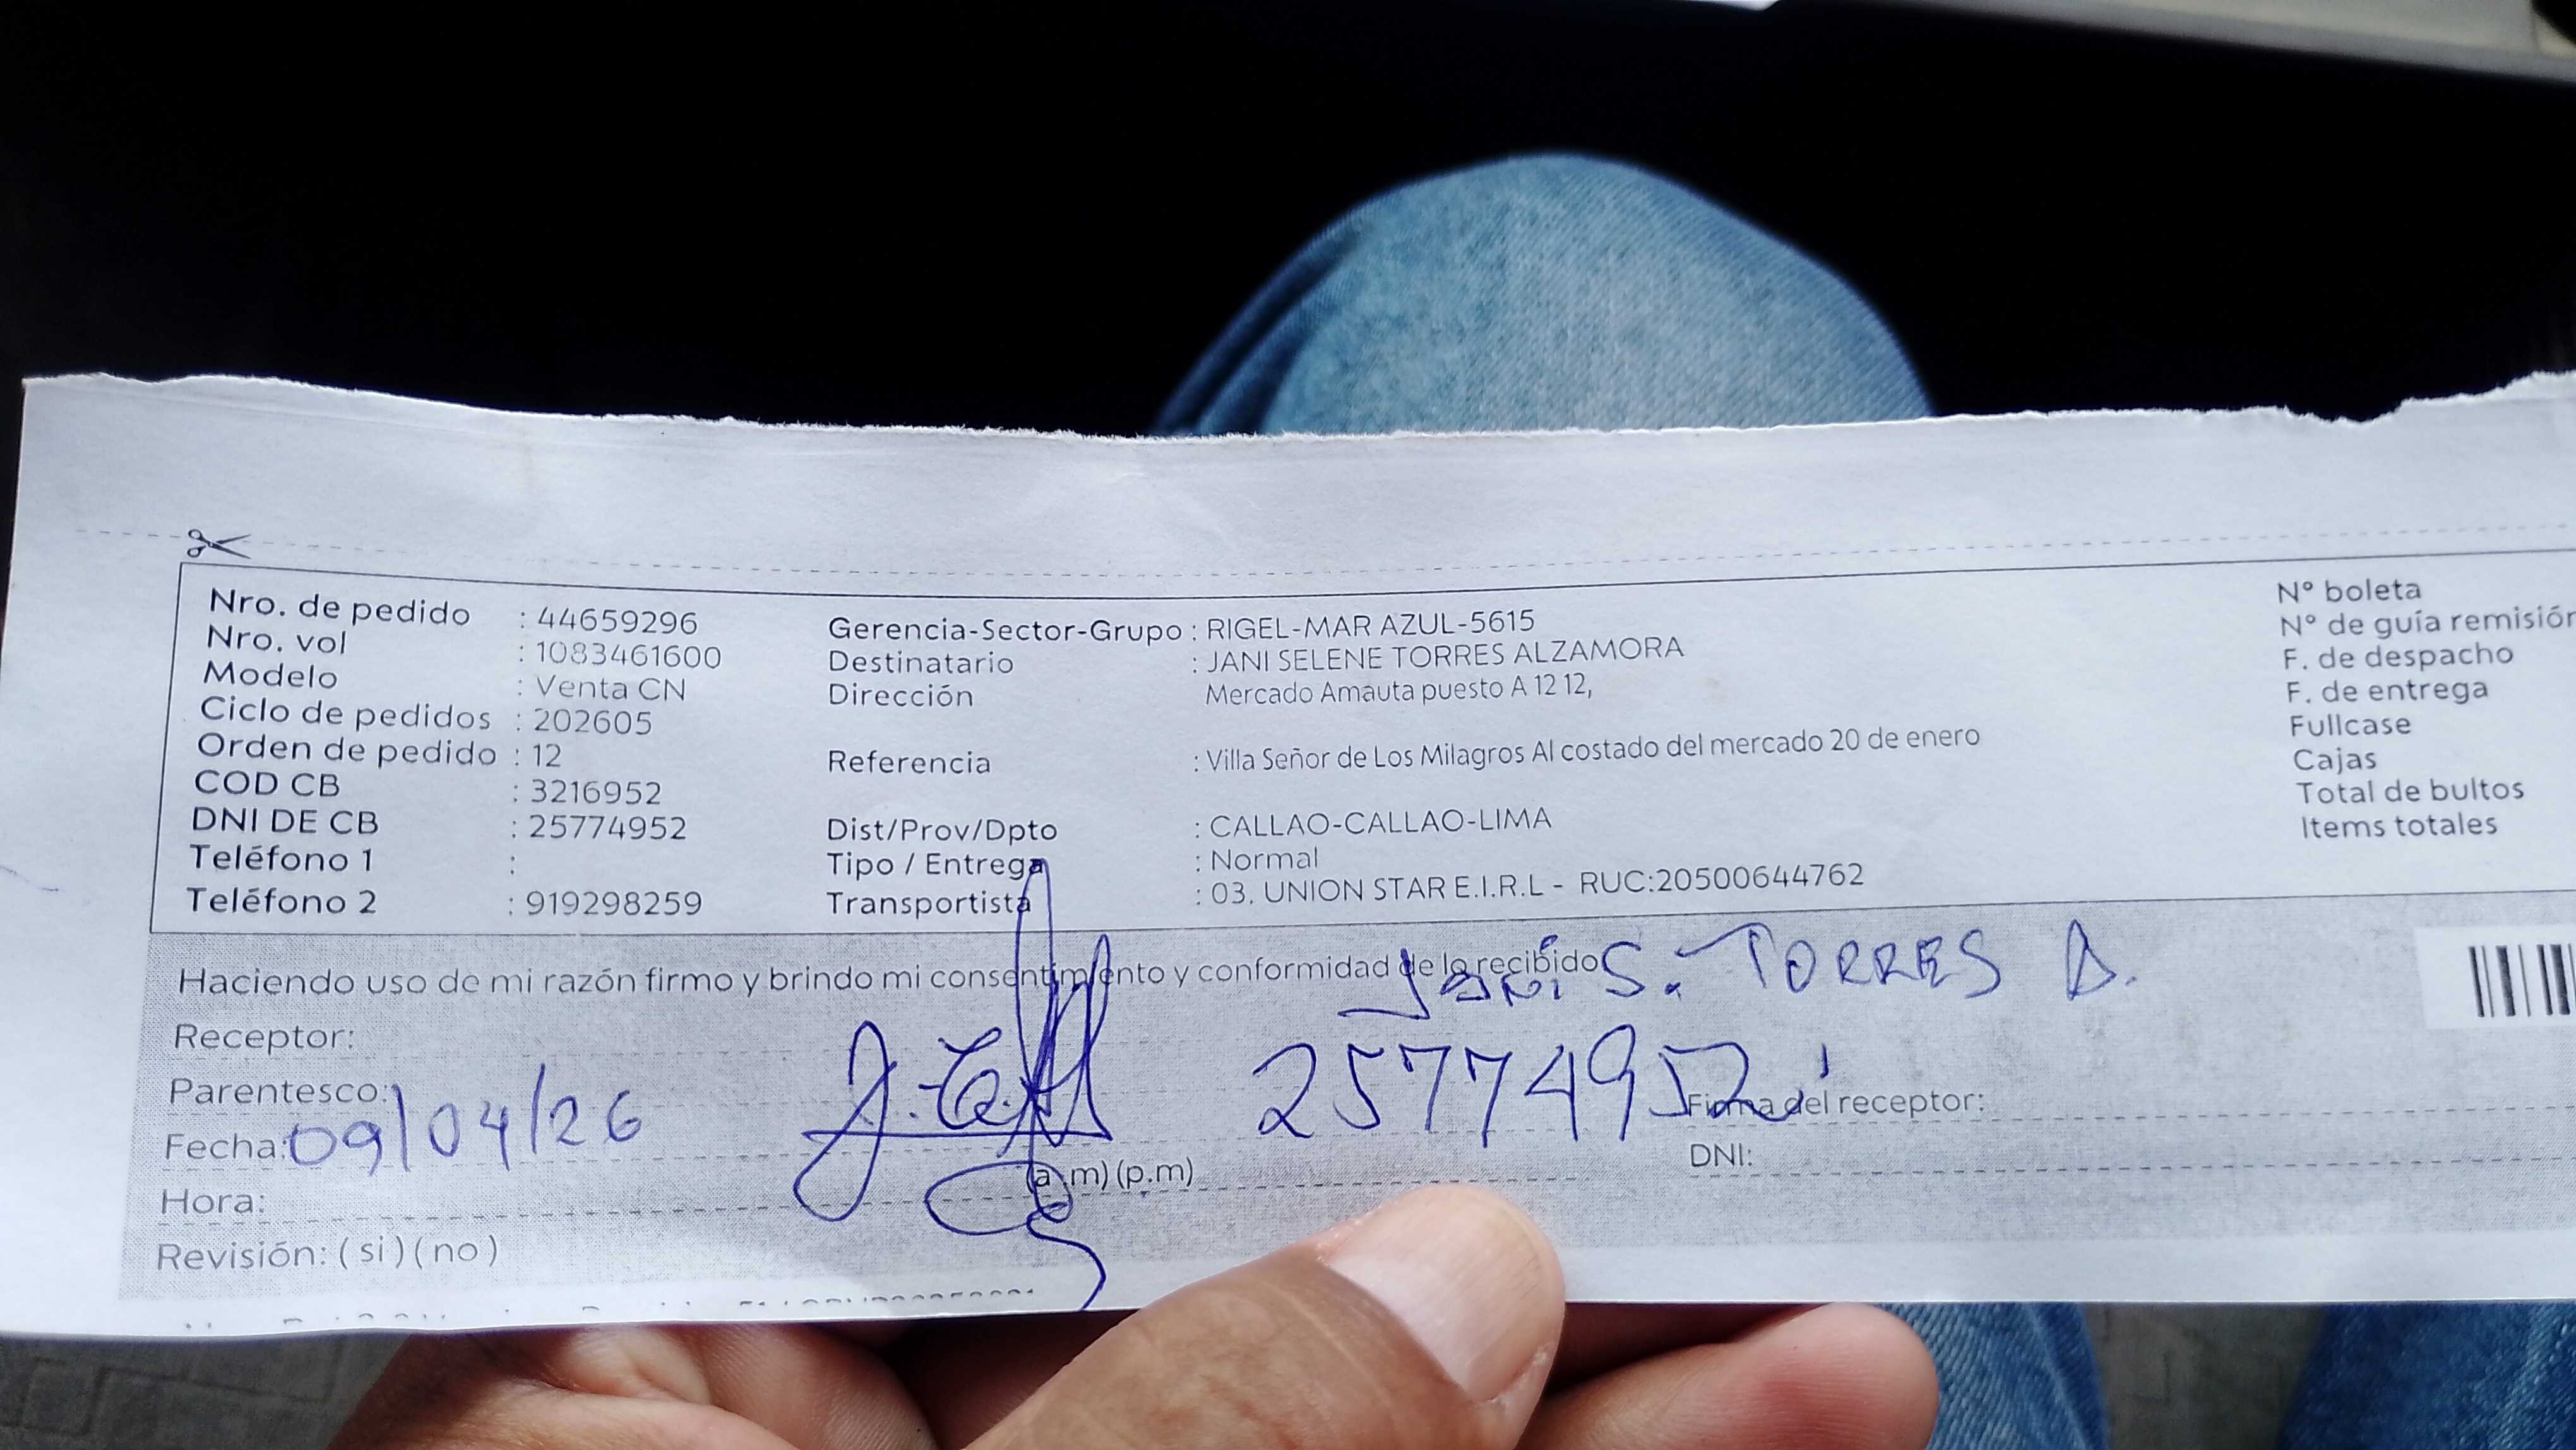 Nro. de pedido : 44659296
Nro. vol : 1083461600
Modelo : Venta CN
Ciclo de pedidos : 202605
Orden de pedido : 12
COD CB : 3216952
DNI DE CB : 25774952
Teléfono 1 :
Teléfono 2 : 919298259
Gerencia-Sector-Grupo : RIGEL-MAR AZUL-5615
Destinatario : JANI SELENE TORRES ALZAMORA
Dirección Mercado Amauta puesto A 12 12,
Referencia : Villa Señor de Los Milagros Al costado del mercado 20 de enero
Dist/Prov/Dpto : CALLAO-CALLAO-LIMA
Tipo / Entrega : Normal
Transportista : 03. UNION STAR E.I.R.L - RUC:20500644762
N° boleta
N° de guía remisión
F. de despacho
F. de entrega
Fullcase
Cajas
Total de bultos
Items totales
Haciendo uso de mi razón firmo y brindo mi consentimiento y conformidad de lo recibido
Jani S. TORRES A.
Receptor:
Parentesco:
25774952
Firma del receptor:
Fecha: 09/04/26
DNI:
Hora: (a.m) (p.m)
Revisión: ( si ) ( no )